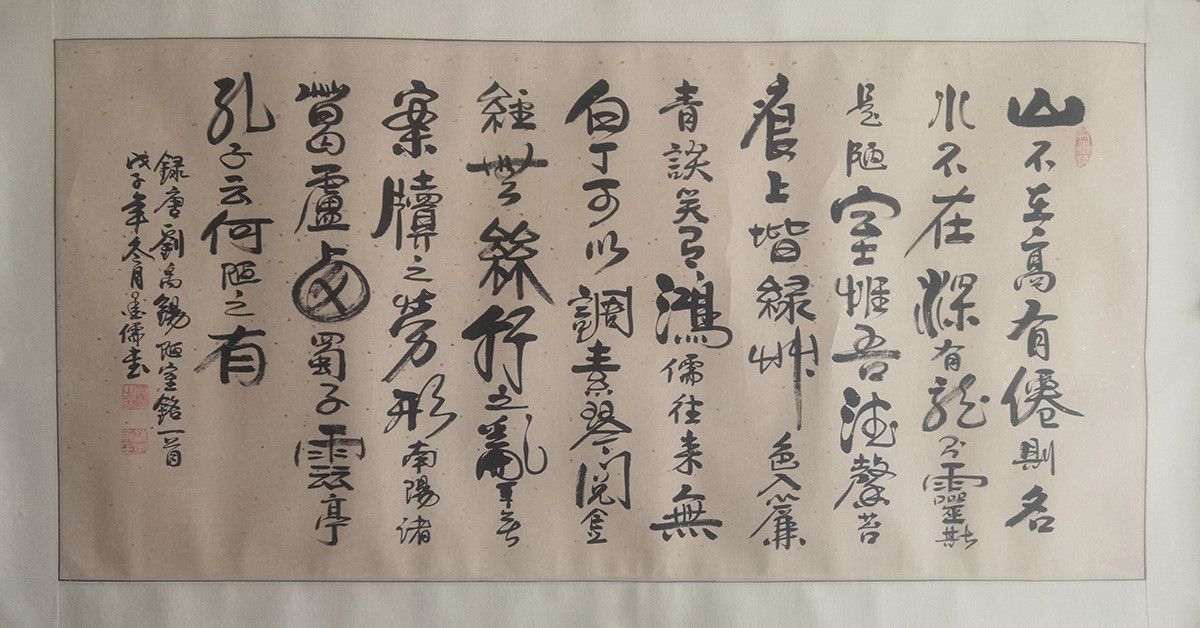 山不在高有僊則名
水不在深有龍則靈斯
是陋室惟吾德馨苔
痕上堦綠艸色入簾
青談笑有鴻儒往來無
白丁可以調素琴閱金
經無絲竹之亂耳無
案牘之勞形南陽諸
葛廬西蜀子雲亭
孔子云何陋之有
録唐劉禹錫陋室銘一首
戊子年冬月墨儒書